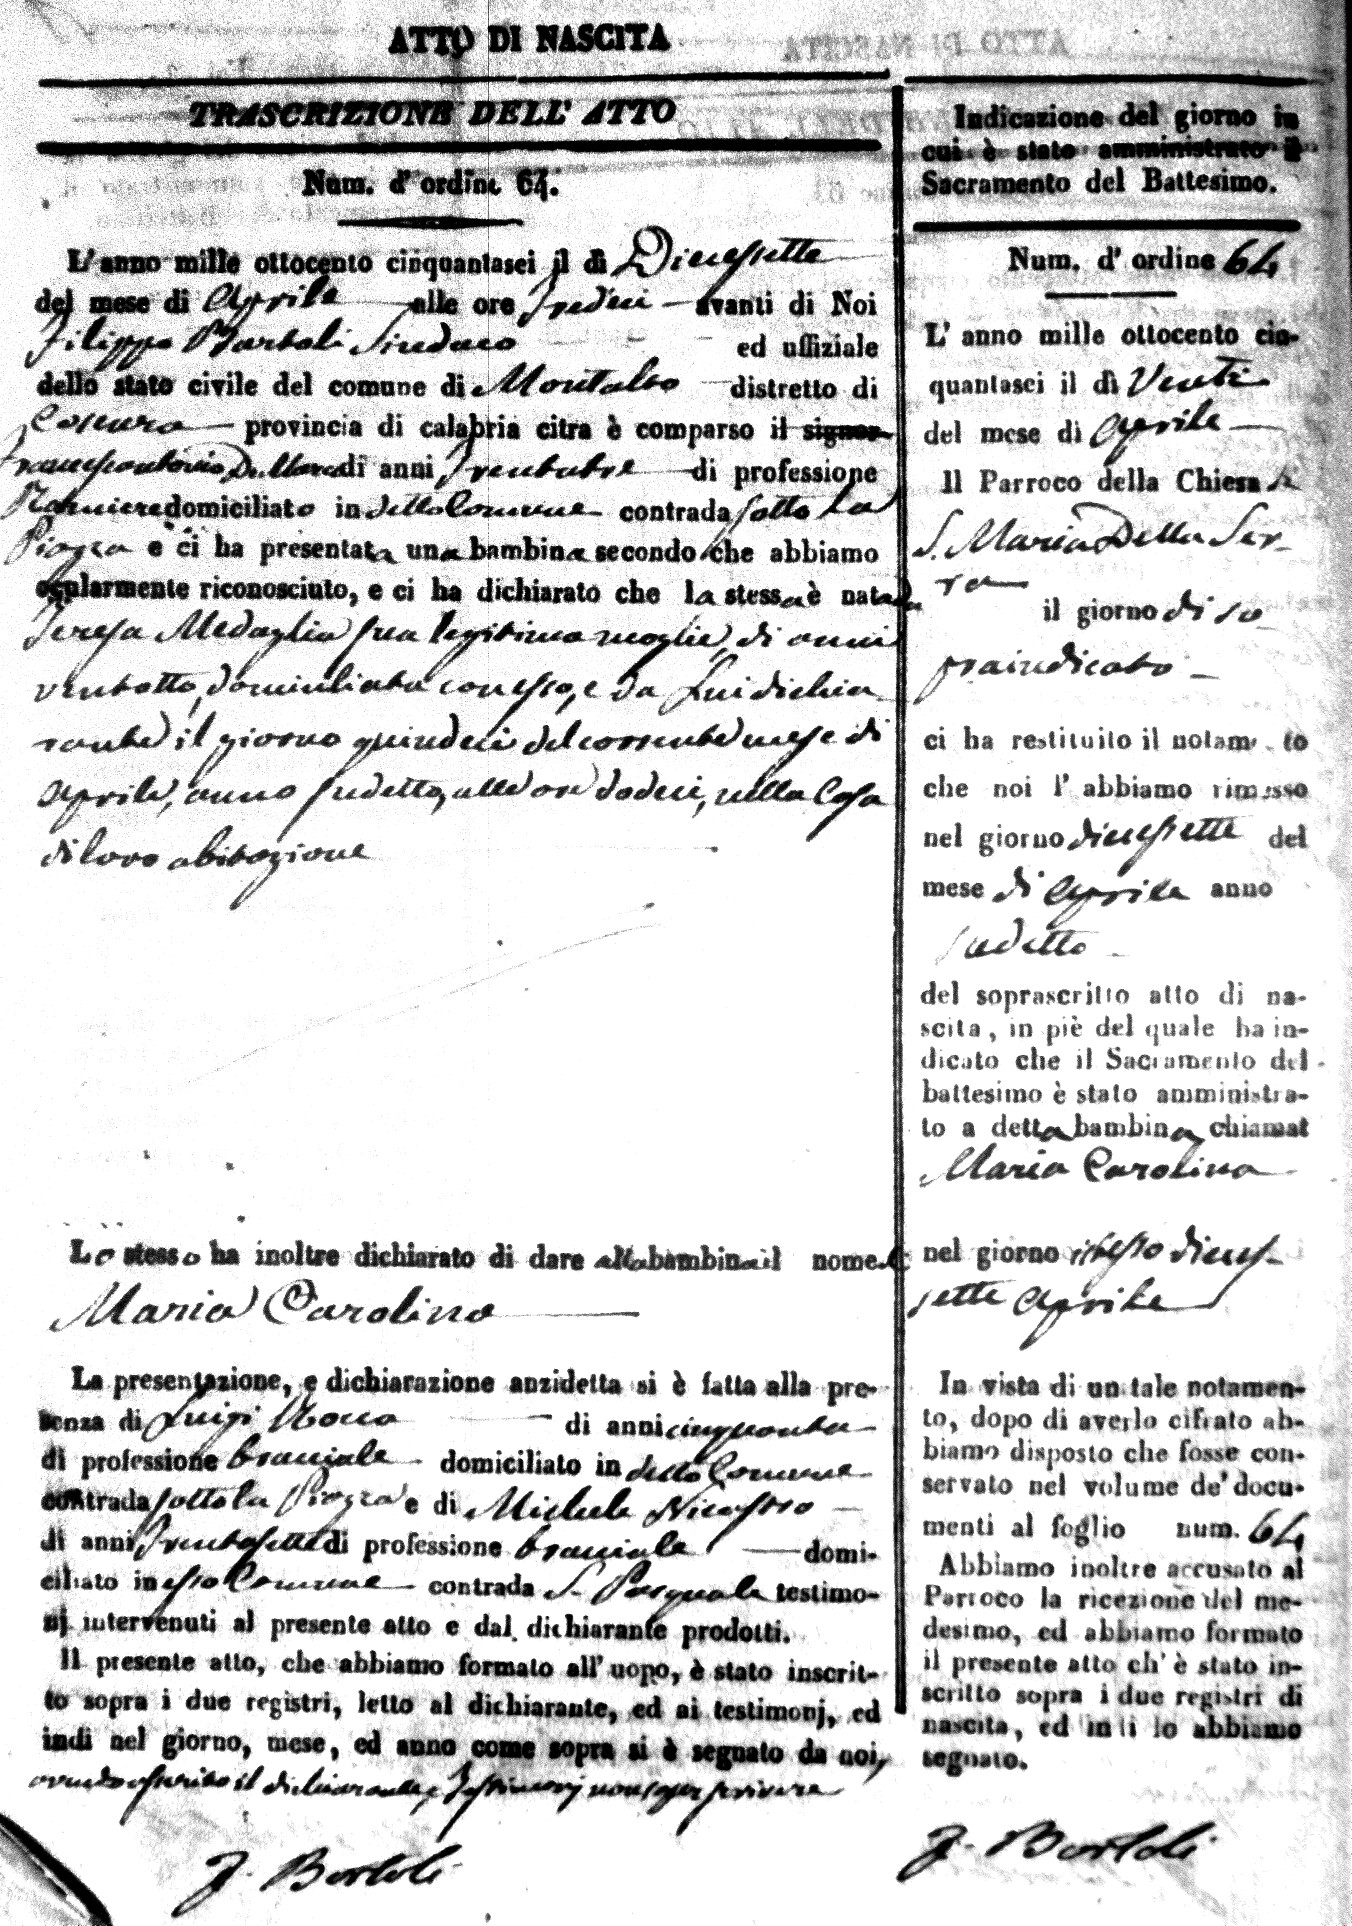 ATTO DI NASCITA
TRASCRIZIONE DELL' ATTO
Num. d' ordine 64.
L' anno mille ottocento cinquantasei il dì Diciessette
del mese di Aprile alle ore Tredici avanti di Noi
Filippo Bartoli Sindaco ed uffiziale
dello stato civile del comune di Montalto distretto di
Cosenza provincia di calabria citra è comparso il signor
Francescantonio De Marco di anni Trentatre di professione
domiciliato in detto Comune contrada sotto la
Piazza e ci ha presentata una bambina secondo che abbiamo
ocularmente riconosciuto, e ci ha dichiarato che la stessa è nata da
Teresa Medaglia sua legitima moglie, di anni
ventotto, domiciliata con esso, e da Lui dichia
rante il giorno quindeci del corrente mese di
Aprile, anno sudetto, alle ore dodeci, nella Casa
di loro abitazione
Lo stesso ha inoltre dichiarato di dare alla bambina il nome di
Maria Carolina
La presentazione, e dichiarazione anzidetta si è fatta alla pre-
senza di Luigi di anni cinquanta
di professione bracciale domiciliato in detto Comune
contrada sotto la Piazza e di Michele Nicastro
di anni Trentasette di professione bracciale domi-
ciliato in esso Comune contrada S. Pasquale testimo-
nj intervenuti al presente atto e dal dichiarante prodotti.
Il presente atto, che abbiamo formato all' uopo, è stato inscrit-
to sopra i due registri, letto al dichiarante, ed ai testimonj, ed
indi nel giorno, mese, ed anno come sopra si è segnato da noi,
avendo asserito il dichiarante, e Testimonj non saper scrivere
F. Bartoli
Indicazione del giorno in
cui è stato amministrato il
Sacramento del Battesimo.
Num. d' ordine 64
L' anno mille ottocento cin-
quantasei il dì Venti
del mese di Aprile
Il Parroco della Chiesa di
S. Maria Della Ser-
ra
il giorno di so
praindicato
ci ha restituito il notamento
che noi l' abbiamo rimesso
nel giorno diciessette del
mese di Aprile anno
sudetto
del soprascritto atto di na-
scita, in piè del quale ha in-
dicato che il Sacramento del
battesimo è stato amministra-
to a detta bambina chiamat
Maria Carolina
nel giorno istesso dicies-
sette Aprile
In vista di un tale notamen-
to, dopo di averlo cifrato ab-
biamo disposto che fosse con-
servato nel volume de' docu-
menti al foglio num. 64
Abbiamo inoltre accusato al
Parroco la ricezione del me-
desimo, ed abbiamo formato
il presente atto ch' è stato in-
scritto sopra i due registri di
nascita, ed indi lo abbiamo
segnato.
F. Bartoli